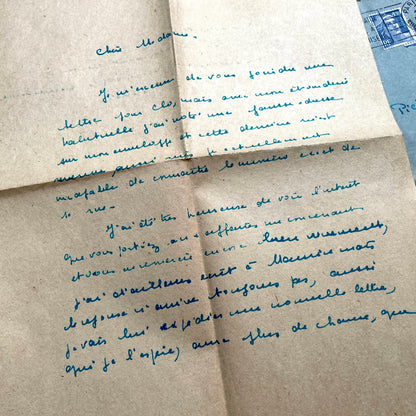 Chère Madame.
Je m'excuse de vous joindre une
lettre pour Clo, mais avec mon étourderie
habituelle j'ai noté une fausse adresse
sur mon enveloppe et cette dernière m'est
revenue, aussi suis-je actuellement
incapable de connaître le numéro exact de
sa rue.
J'ai été très heureuse de voir l'intérêt
que vous portiez aux affaires me concernant
et vous en remercie encore bien vivement,
j'ai d'ailleurs écrit à Maurice mais
la réponse n'arrive toujours pas, aussi
je vais lui expédier une nouvelle lettre,
qui je l'espère, aura plus de chance, que